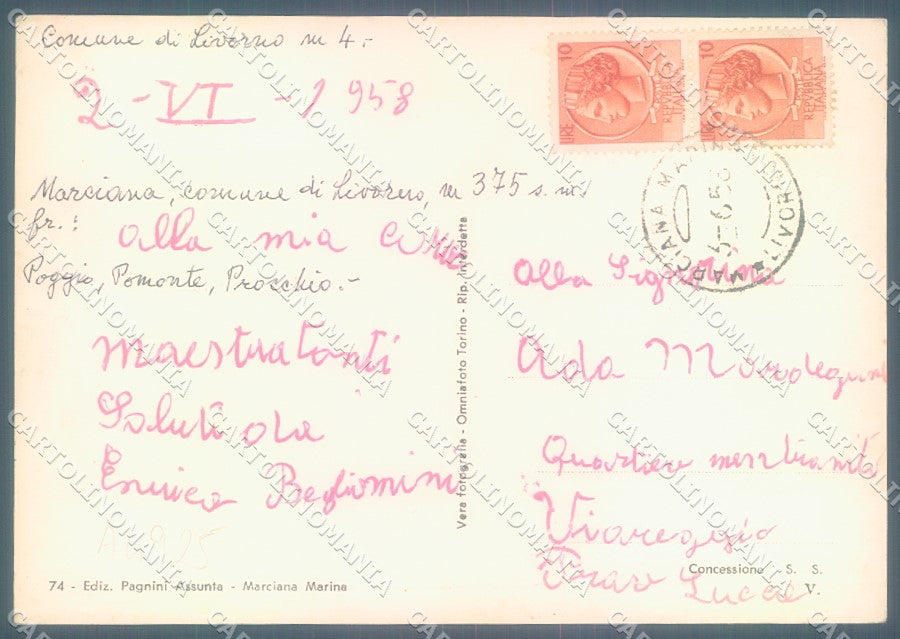 Comune di Livorno m 4.-
2 - VI - 1958
Marciana, comune di Livorno, m 375 s. m.
fr.:
alla mia
Poggio, Pomonte, Procchio.-
maestra tanti
Saluti da
Enrico Beglomini
74 - Ediz. Pagnini Assunta - Marciana Marina
Vera fotografia - Omniafoto Torino - Rip. interdetta
10 LIRE REPVBBLICA ITALIANA
10 LIRE REPVBBLICA ITALIANA
MARCIANA MARINA LIVORNO
-6.58
Alla Signorina
Ada
Quartiere
Viareggio
Lucca
Concessione S. S.
V.
CARTOLINOMANIA